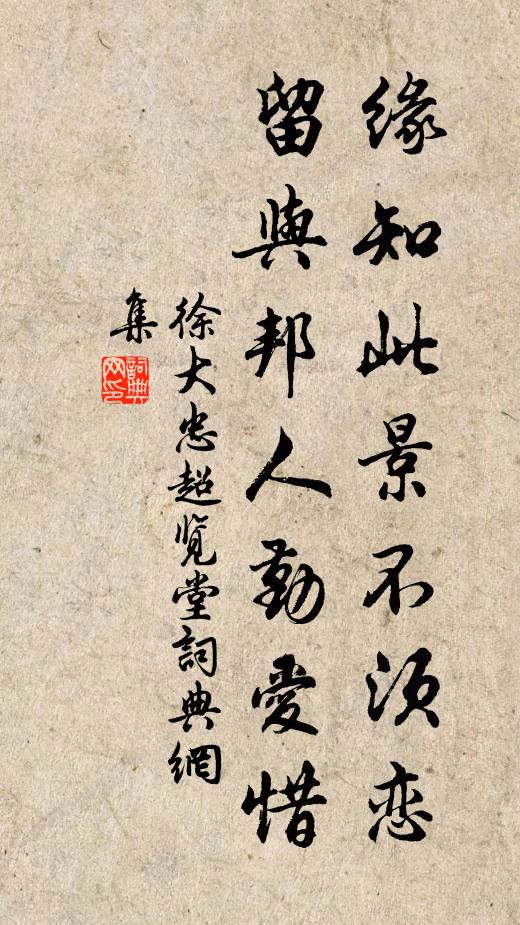 缘知此景不须恋
留與邦人勤愛惜
徐大忠超览堂詞典網
集
詞典网印